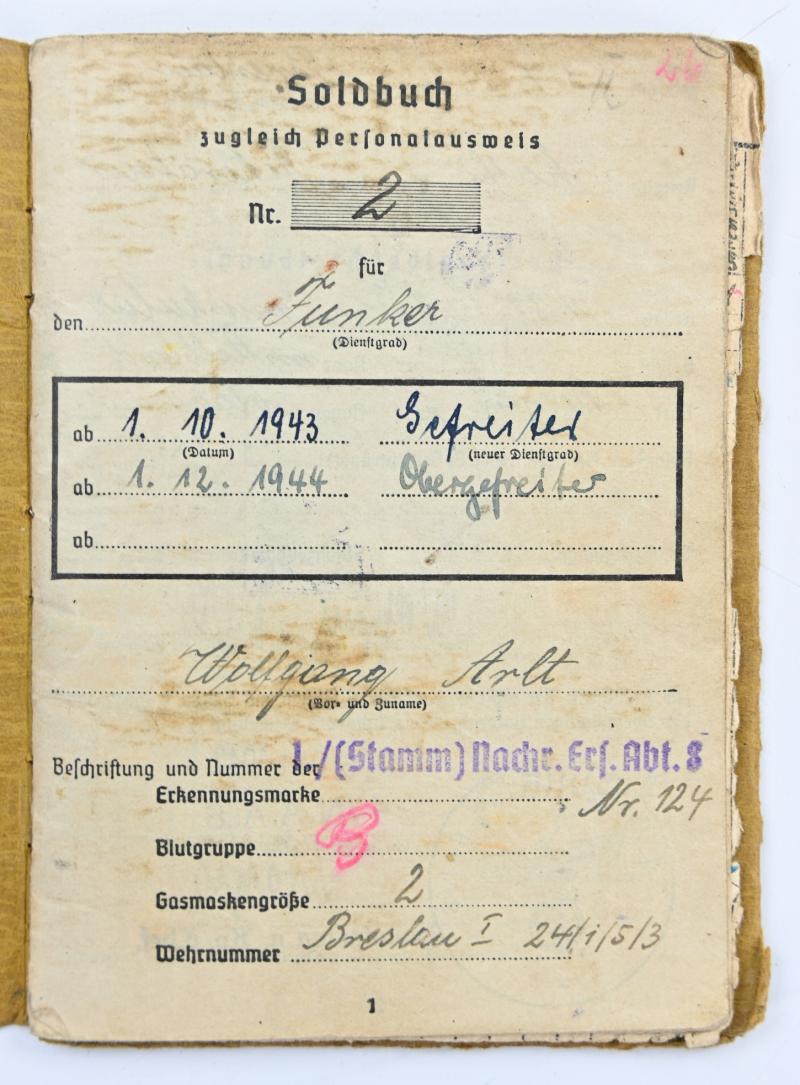 26
Soldbuch
zugleich Personalausweis
Nr. 2
für
den Funker
(Dienstgrad)
ab 1. 10. 1943 Gefreiter
(Datum) (neuer Dienstgrad)
ab 1. 12. 1944 Obergefreiter
ab
Wolfgang Arlt
(Vor- und Zuname)
Beschriftung und Nummer der 1/(Stamm) Nachr. Ers. Abt. 8
Erkennungsmarke Nr. 124
Blutgruppe B
Gasmaskengröße 2
Wehrnummer Breslau I 24/1/5/3
1